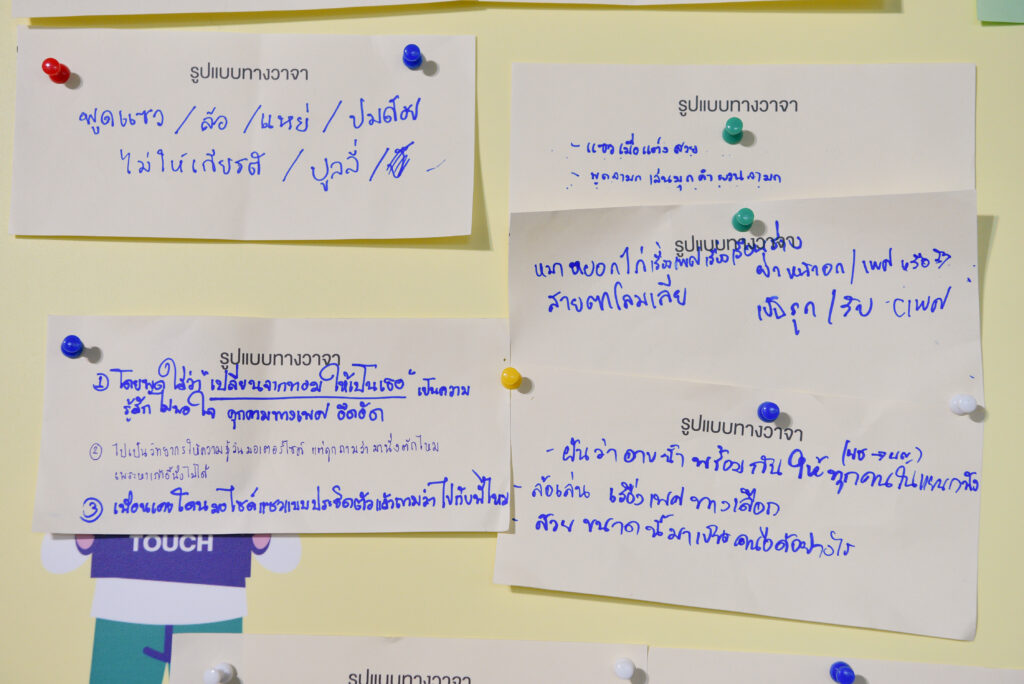 รูปแบบทางวาจา
พูดแซว / ล้อ / แหย่ / ปมด้อย
ไม่ให้เกียรติ / บูลลี่ /
รูปแบบทางวาจา
- แซวเมื่อแต่งสวย
- พูดลามก เล่นมุก คำผวนลามก
รูปแบบทางวาจา
หมาหยอกไก่ เรื่องเพศ
สายตาโลมเลีย
หน้าอก / เพศ หรือ
เป็นรุก / รับ
รูปแบบทางวาจา
① โดยพูดใส่ว่า "เปลี่ยนจากทอม ให้เป็นเธอ" เป็นความ
รู้สึกไม่พอใจ คุกคามทางเพศ อึดอัด
② ไปเป็นวิทยากรให้ความรู้วินมอเตอร์ไซค์ แต่ถูกถามว่ามานั่งตักไหม
เพราะหาเก้าอี้นั่งไม่ได้
③ เพื่อนเคยโดนมอไซค์แซวแบบประชิดตัวแล้วถามว่าไปกับพี่ไหม
รูปแบบทางวาจา
- ฝันว่าอาบน้ำพร้อมกัน ให้ทุกคนในแผนกฟัง
- ล้อเล่น เรื่องเพศทางเลือก
- สวยขนาดนี้มาเป็นคนไอดีอย่างไร
TOUCH
รูปแบบทางวาจา